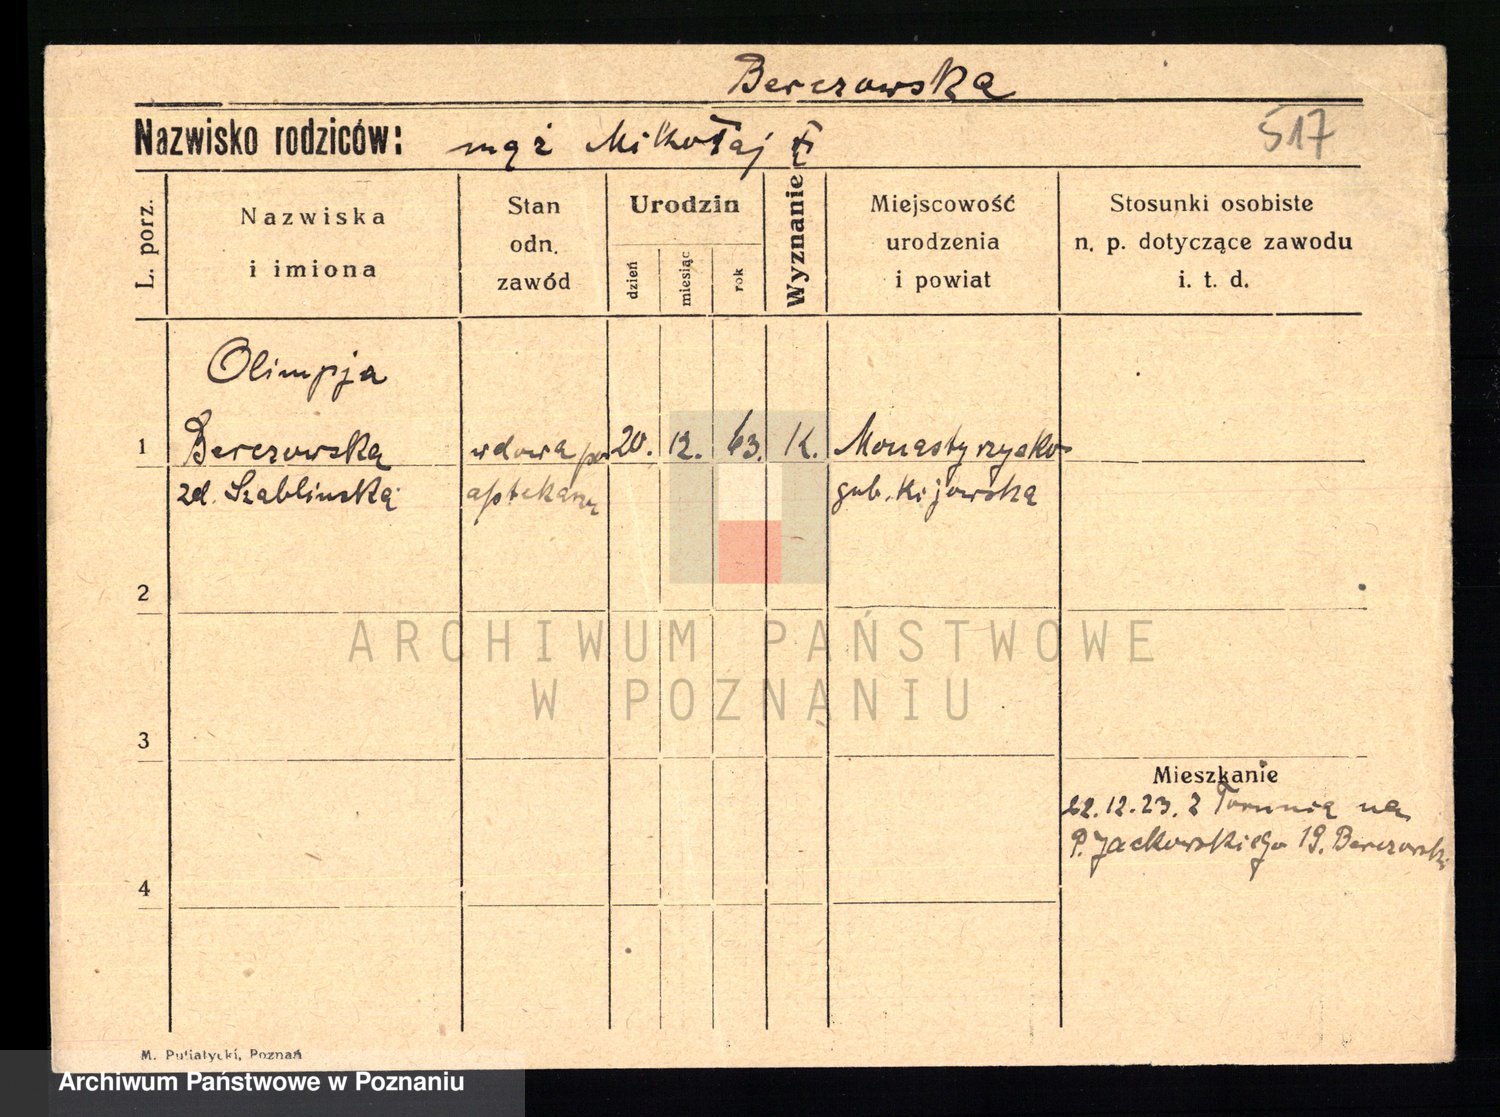 Berezowska
Nazwisko rodziców: mąż Mikołaj
517
L. porz.
Nazwiska
i imiona
Stan
odn.
zawód
Urodzin
dzień
miesiąc
rok
Wyznanie
Miejscowość
urodzenia
i powiat
Stosunki osobiste
n. p. dotyczące zawodu
i. t. d.
Olimpja
1 Berezowska wdowa po 20. 12. 63. K. Monastyrzysko
zd. Szablińska aptekarzu gub. Kijowska
2
ARCHIWUM PAŃSTWOWE
W POZNANIU
3
Mieszkanie
22.12.23. z Torunia na
P. Jackowskiego 19. Berezowski
4
M. Putiatycki, Poznań
Archiwum Państwowe w Poznaniu